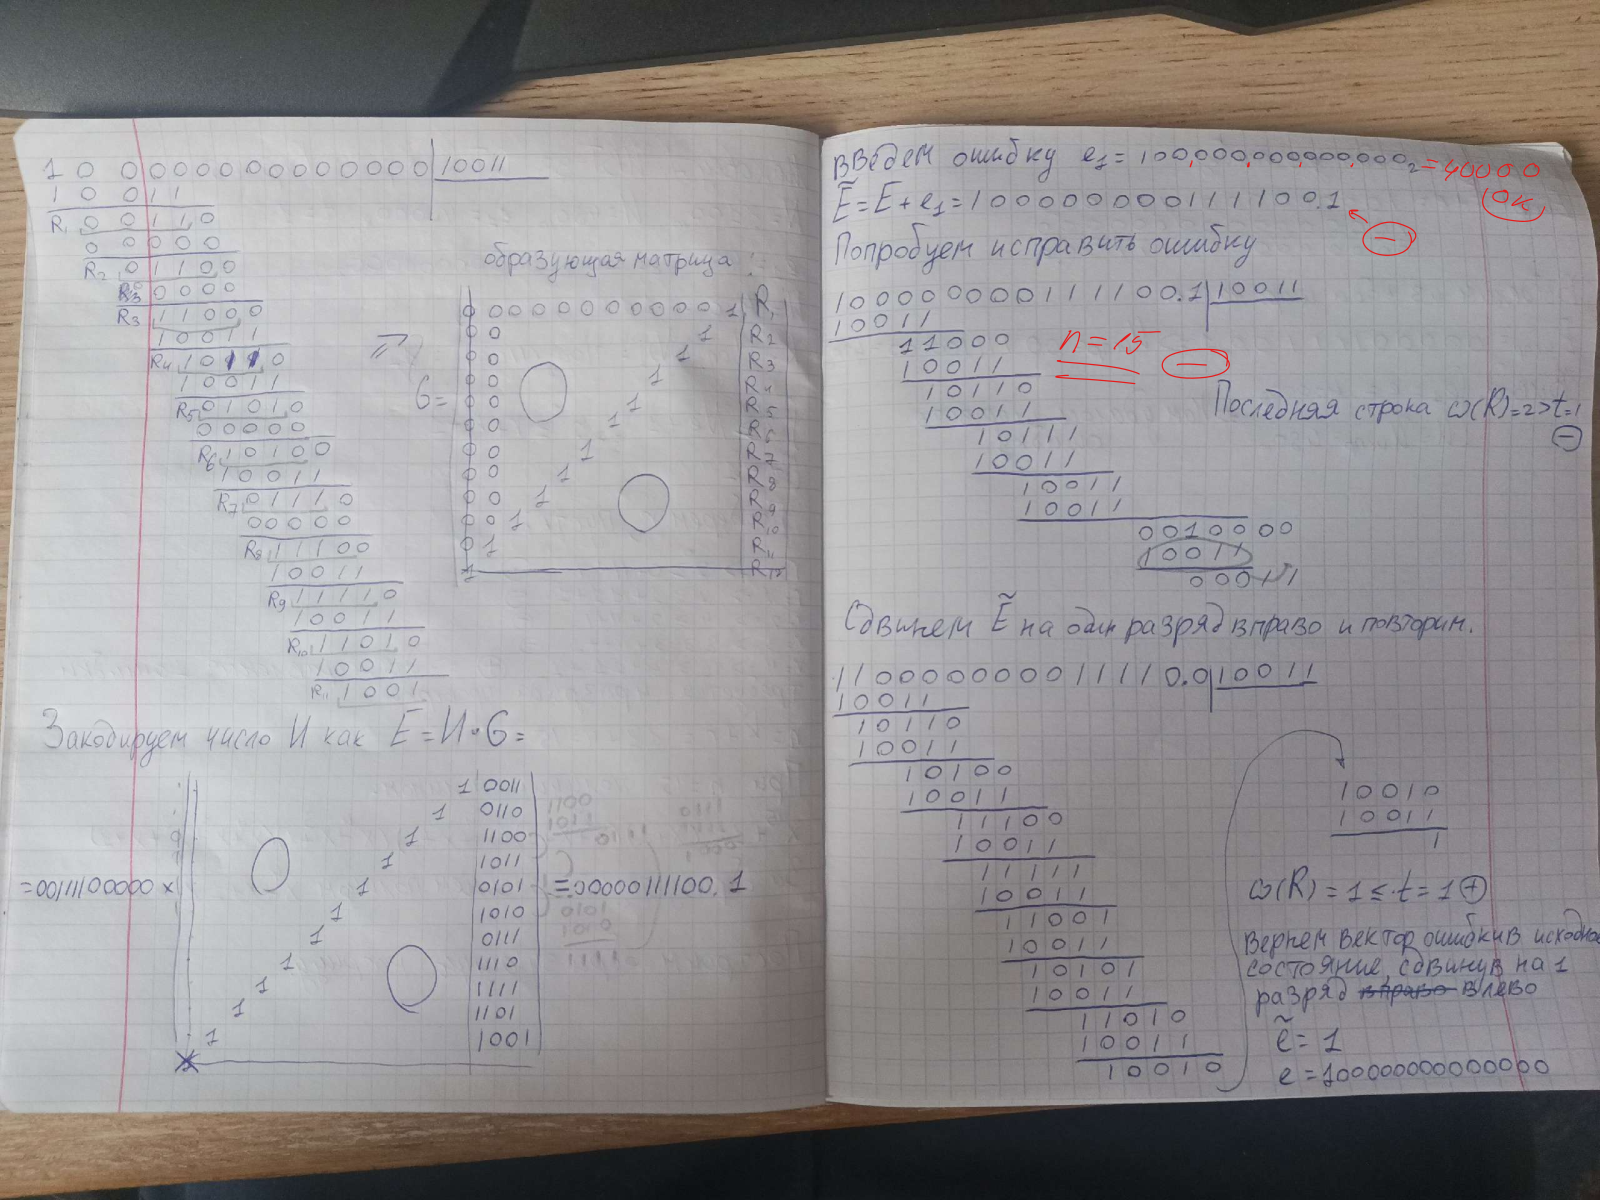 1 0 0 0 0 0 0 0 0 0 0 0 0 0 0 | 10011
1 0 0 1 1
R1 0 0 1 1 0
0 0 0 0 0
R2 0 1 1 0 0
R3 0 0 0 0
R3 1 1 0 0 0
1 0 0 1 1
R4 1 0 1 1 0
1 0 0 1 1
R5 0 1 0 1 0
0 0 0 0 0
R6 1 0 1 0 0
1 0 0 1 1
R7 0 1 1 1 0
0 0 0 0 0
R8 1 1 1 0 0
1 0 0 1 1
R9 1 1 1 1 0
1 0 0 1 1
R10 1 1 0 1 0
1 0 0 1 1
R11 1 0 0 1
образующая матрица:
0 0 0 0 0 0 0 0 0 0 0 1 R1
0 0 1 R2
0 0 1 R3
0 0 1 R4
G= 0 0 1 R5
0 0 1 R6
0 0 1 R7
0 0 1 R8
0 0 1 R9
0 0 1 R10
0 1 R11
1 R12
Закодируем число И как E = И · G =
1 0011
1 0110
1 1100
1 1011
=00111100000 × 1 0101 =00000111100.1
1 1010
1 0111
1 1110
1 1111
1 1101
1 1001
введем ошибку e1 = 100,000,000,000,0002 = 40000
OK
Ẽ = E + e1 = 1 0 0 0 0 0 0 0 0 1 1 1 1 0 0.1
Попробуем исправить ошибку
1 0 0 0 0 0 0 0 0 1 1 1 1 0 0.1 | 10011
1 0 0 1 1
1 1 0 0 0
n = 15
1 0 0 1 1
1 0 1 1 0
1 0 0 1 1
Последняя строка ω(R)=2>t=1
1 0 1 1 1
1 0 0 1 1
1 0 0 1 1
1 0 0 1 1
0 0 1 0 0 0 0
1 0 0 1 1
0 0 0 1 1
Сдвинем Ẽ на один разряд вправо и повторим.
1 1 0 0 0 0 0 0 0 0 1 1 1 1 0.0 | 10011
1 0 0 1 1
1 0 1 1 0
1 0 0 1 1
1 0 1 0 0
1 0 0 1 1
1 1 1 0 0
1 0 0 1 1
1 1 1 1 1
1 0 0 1 1
1 1 0 0 1
1 0 0 1 1
1 0 1 0 1
1 0 0 1 1
1 1 0 1 0
1 0 0 1 1
1 0 0 1 0
1 0 0 1 0
1 0 0 1 1
1
ω(R) = 1 ≤ t = 1 +
вернем вектор ошибки в исходное
состояние, сдвинув на 1
разряд вправо влево
ẽ = 1
e = 100000000000000